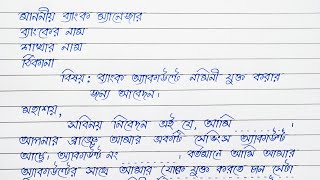 মাননীয় ব্যাংক ম্যানেজার
ব্যাংকের নাম
শাখার নাম
ঠিকানা
বিষয়: ব্যাংক অ্যাকাউন্টে নমিনী যুক্ত করার
জন্য আবেদন।
মহাশয়,
সবিনয় নিবেদন এই যে, আমি ..........
আপনার ব্রাঞ্চে আমার একটি সেভিংস অ্যাকাউন্ট
আছে। অ্যাকাউন্ট নং .......... । বর্তমানে আমি আমার
অ্যাকাউন্টের সাথে আমার যুক্ত করতে চান সেটা